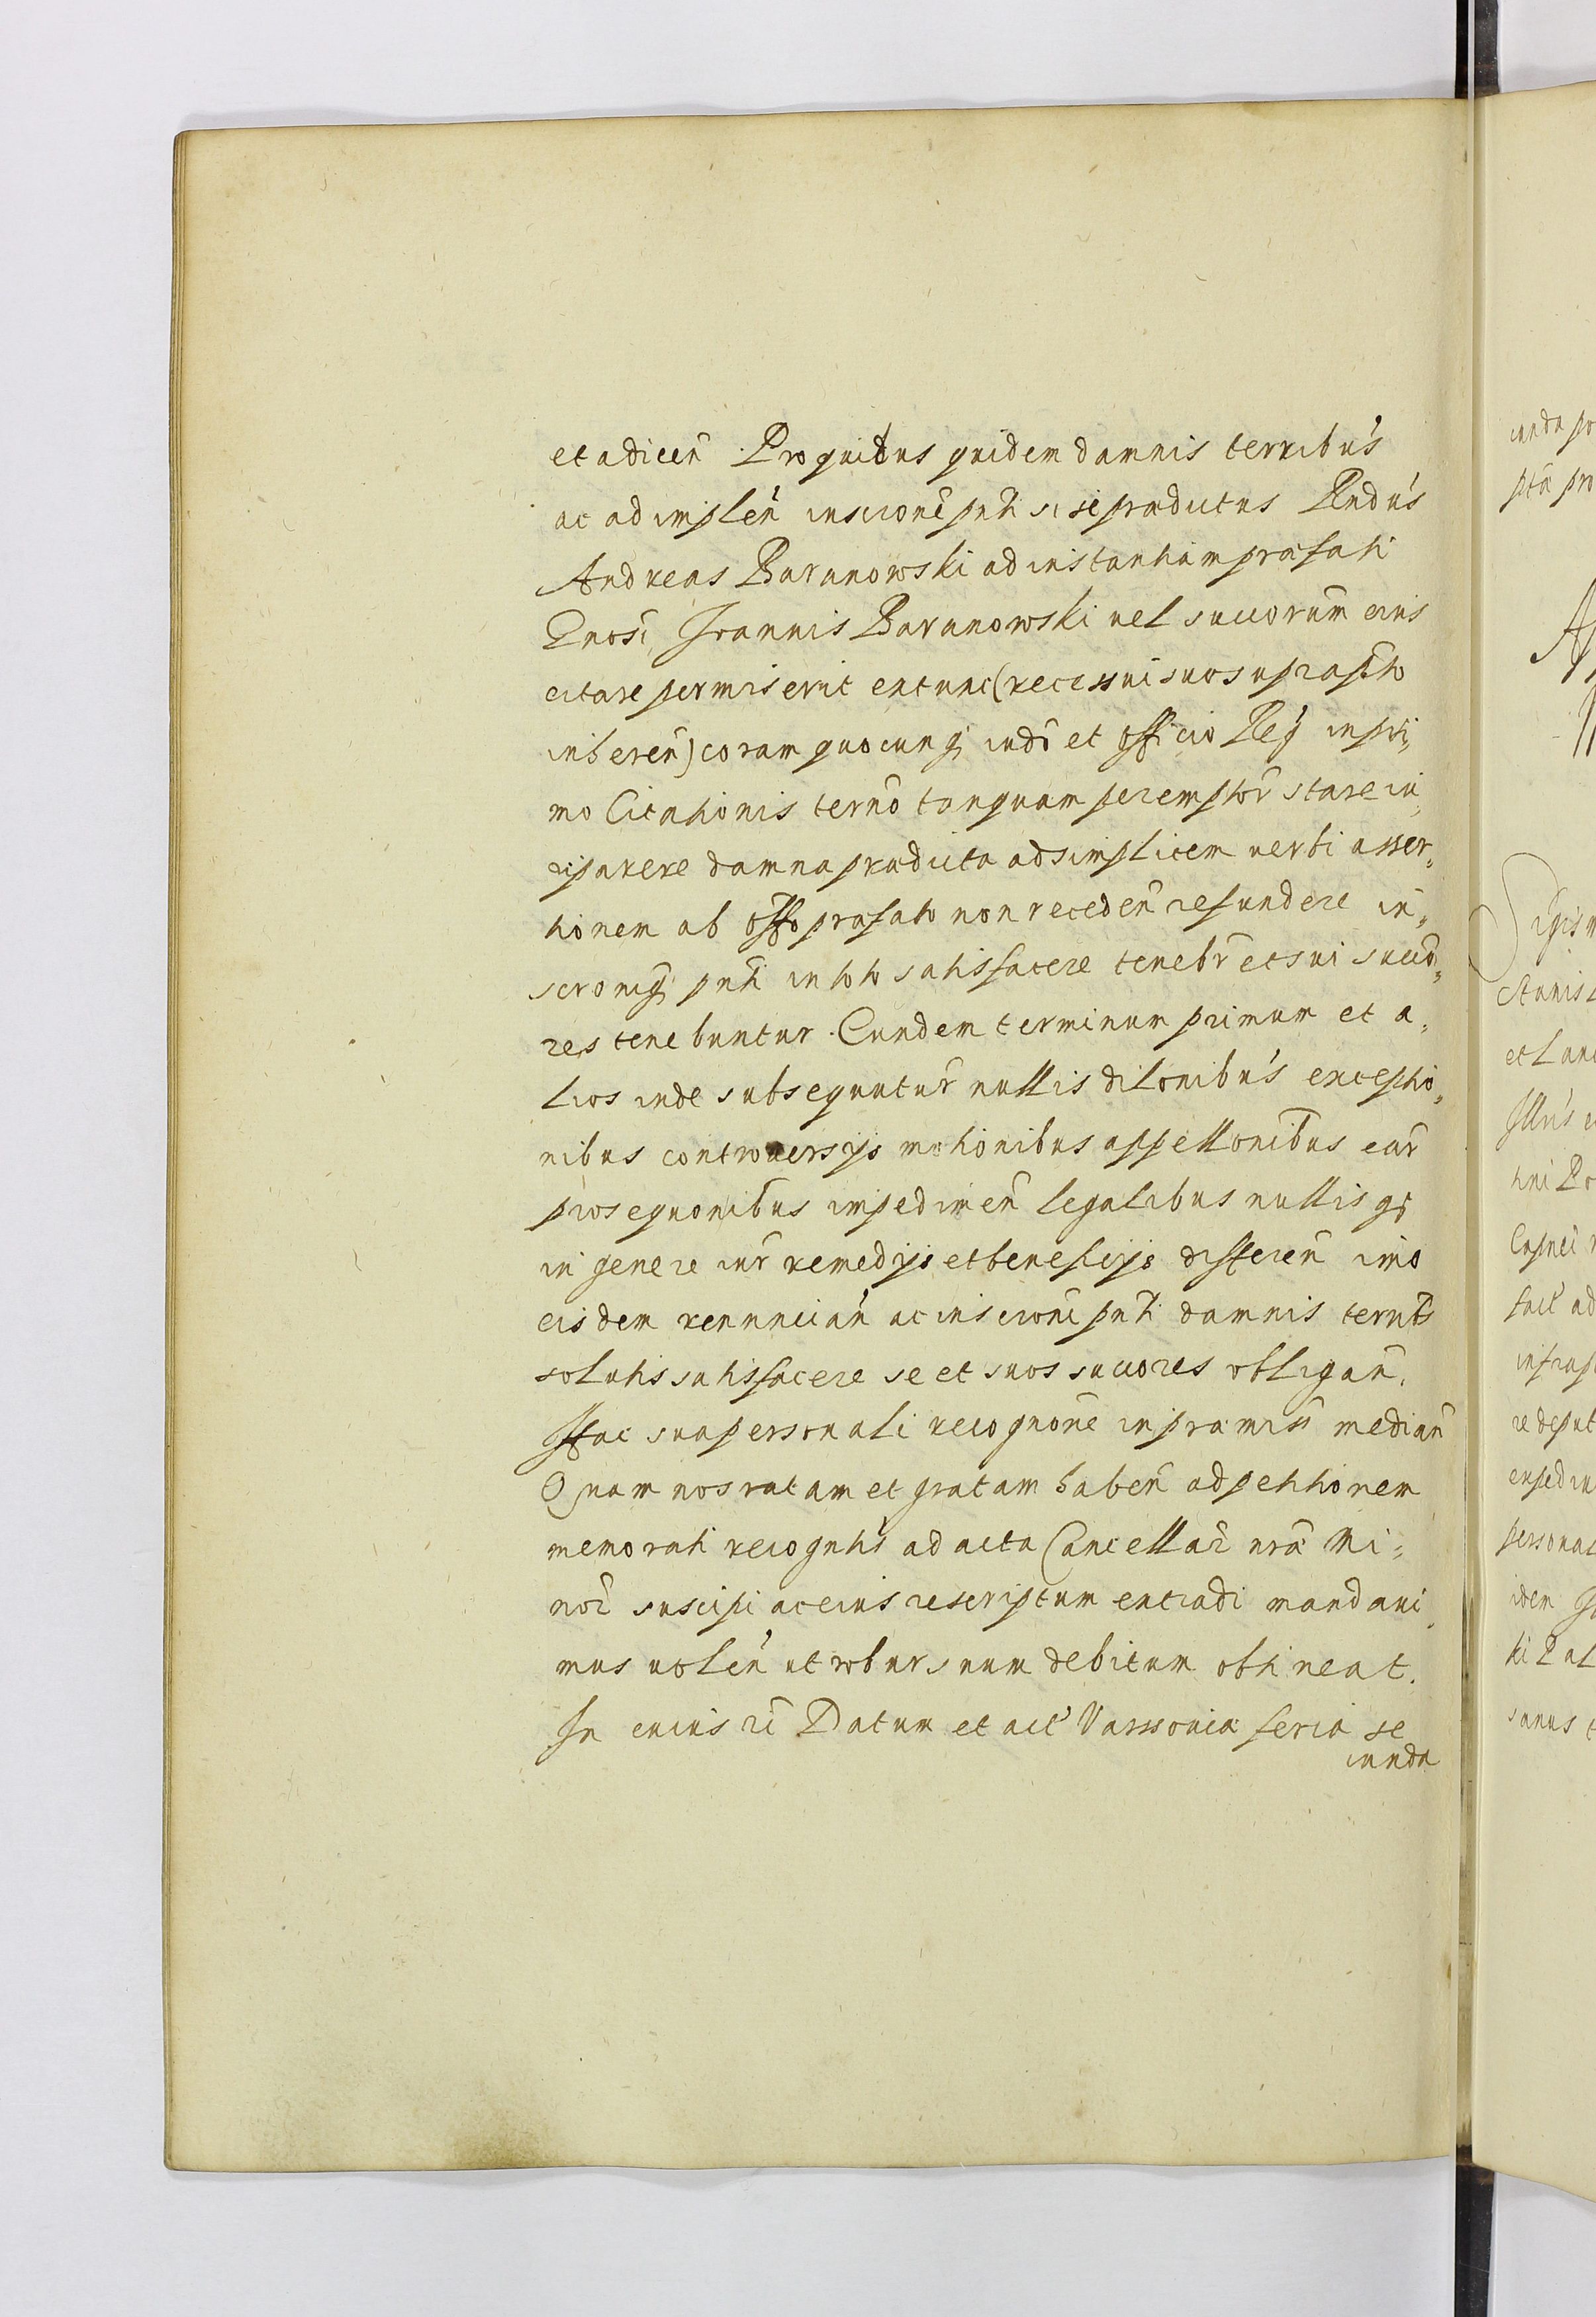 et adicen̄ Pro quibus quidem damnis terribus
ac adimplen̄ inscrione pnti si se prædictus Rndus
Andreas Baranowski ad instantiam præfati
Gnosi Joannis Baranowski uel succorum eius
citare permiserit extunc (recessui suo suprascpto
inheren̄) coram quocunq; iudi et officio Reg̃ in pri„
mo Citationis terno tanquam perempto͠r stare iu„
ri parere damna prædicta ad simplicem uerbi asser„
tionem ab offo præfato non receden̄ refundere in„
scrioniq; pnti in toto satisfacere tenebr̄ et sui succo„
res tenebuntur. Eundem terminum primum et a„
lios inde subsequutur̄ nullis dilonibus exceptio„
nibus controuersijs motionibus appellonibus ear̄
prosequonibus impedimen̄ legalibus nullis q;
in genere iur̄ remedijs et beneficijs differen̄ imo
eisdem renuncian̄ ac inscrioni pnti damnis ternis
solutis satisfacere se et suos succores obligan̄.
Hac sua personali recognone in præmiss̄ median̄
Quam nos ratam et gratam haben̄ ad petitionem
memorati recogntis ad acta Cancellar̄ nræ Mi„
nor̄ suscipi ac eius rescriptum extradi mandaui„
mus uolen̄ ut robur suum debitum obtineat.
In cuius rei Datum et act̄ Varssouiæ feria se
cunda
cunda
pro
Sigism
Stanisl
et Lanc
Illris
tini
Capnei
fact ad
infrasc
re deput
exped
personal
idem